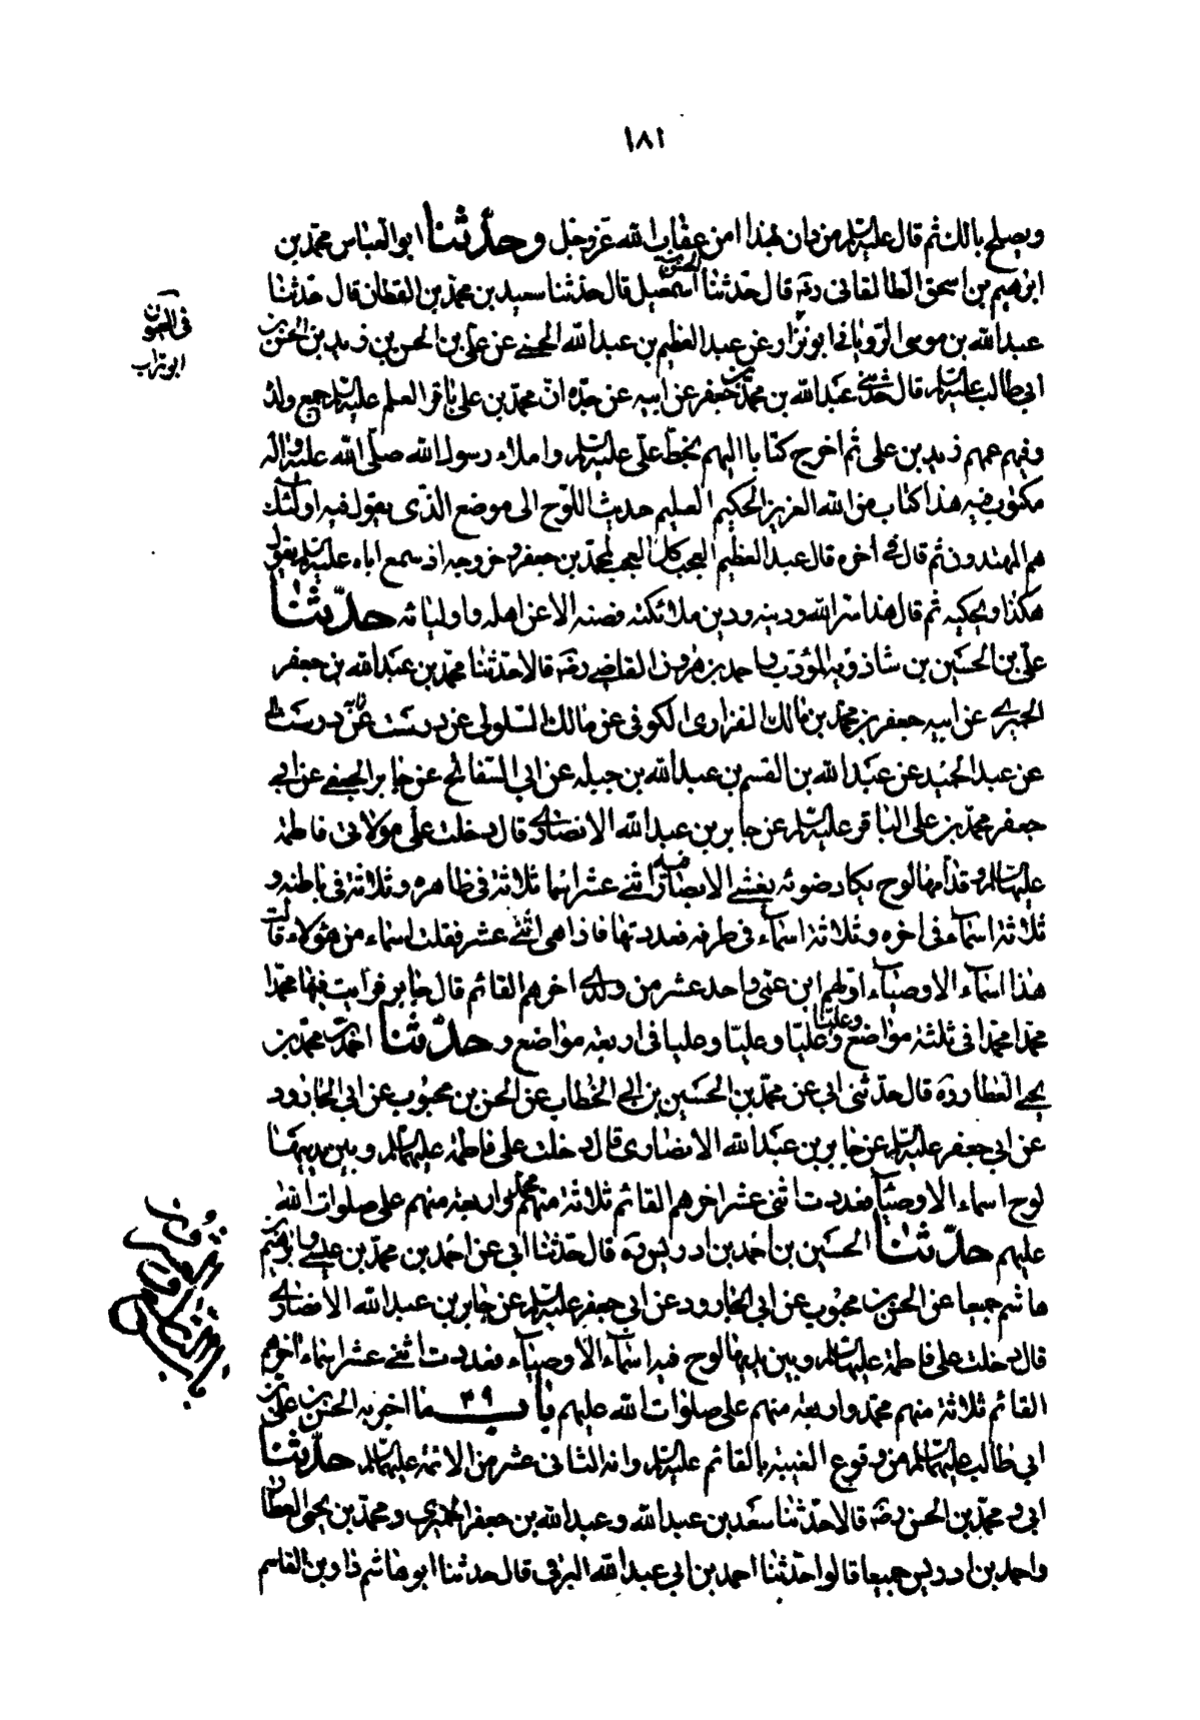 ١٨١
ويصلح بالك ثم قال عليه السلم من دان بهذا امن عقاب الله عز وجل وحدّثنا ابو العباس محمد بن
ابرهيم بن اسحق الطالقانى رضه قال حدثنا الحسن بن اسمعيل قال حدثنا سعيد بن محمد بن القطان قال حدثنا
عبد الله بن موسى الرويانى ابو نزار عن عبد العظيم بن عبد الله الحسنى عن على بن الحسن بن زيد بن الحسن بن
ابى طالب عليه السلم قال حدثنى عبد الله بن محمد بن جعفر عن ابيه عن جده ان محمد بن على باقر العلم عليه السلم جمع ولد
وفيهم عمهم زيد بن على ثم اخرج كتابا اليهم بخط على عليه السلم واملاء رسول الله صلى الله عليه واله
مكتوب فيه هذا كتاب من الله العزيز الحكيم العليم حديث اللوح الى موضع الذى يقول فيه اولئك
هم المهتدون ثم قال فى اخره قال عبد العظيم العجب كل العجب لمحمد بن جعفر وخروجه اذ سمع اباه عليه السلم يقول
هكذا ويحكيه ثم قال هذا سر الله ودينه ودين ملائكته فصنه الا عن اهله واوليائه حدّثنا
على بن الحسين بن شاذويه المؤدب واحمد بن هرون القاضى رضه قالا حدثنا محمد بن عبد الله بن جعفر
الحميرى عن ابيه جعفر بن محمد بن مالك الفزارى الكوفى عن مالك السلولى عن درست عن درست
عن عبد الحميد عن عبد الله بن القسم بن عبد الله بن جبله عن ابى السفاتج عن جابر الجعفى عن ابى
جعفر محمد بن على الباقر عليه السلم عن جابر بن عبد الله الانصارى قال دخلت على مولاتى فاطمة
عليها السلم وقدامها لوح يكاد ضوئه يغشى الابصار فيه اثنى عشر اسما ثلاثة فى ظاهره وثلاثة فى باطنه و
ثلاثة اسماء فى اخره وثلاثة اسماء فى طرفه فعددتها فاذا هى اثنى عشر فقلت اسماء من هؤلاء قالت
هذا اسماء الاوصياء اولهم ابن عمى واحد عشر من ولدى اخرهم القائم قال جابر فرايت فيها محمدا
محمدا محمدا فى ثلثة مواضع وعليا وعليا وعليا وعليا فى اربعة مواضع وحدّثنا احمد بن محمد بن
يحيى العطار ره قال حدثنى ابى عن محمد بن الحسين بن ابى الخطاب عن الحسن بن محبوب عن ابى الجارود
عن ابى جعفر عليه السلم عن جابر بن عبد الله الانصارى قال دخلت على فاطمة عليها السلم وبين يديها
لوح اسماء الاوصياء فعددت اثنى عشر اخرهم القائم ثلاثة منهم محمد واربعة منهم على صلوات الله
عليهم حدّثنا الحسين بن احمد بن ادريس ره قال حدثنا ابى عن احمد بن محمد بن عيسى وابرهيم بن
هاشم جميعا عن الحسن بن محبوب عن ابى الجارود عن ابى جعفر عليه السلم عن جابر بن عبد الله الانصارى
قال دخلت على فاطمة عليها السلم وبين يديها لوح فيه اسماء الاوصياء فعددت اثنى عشر اسما اخرهم
القائم ثلاثة منهم محمد واربعة منهم على صلوات الله عليهم باب ٢٩ ما اخبر به الحسن بن على بن
ابى طالب عليهما السلم من وقوع الغيبة بالقائم عليه السلم وانه الثانى عشر من الائمة عليهم السلم حدّثنا
ابى و محمد بن الحسن رضه قالا حدثنا سعد بن عبد الله وعبد الله بن جعفر الحميرى ومحمد بن يحيى العطار
واحمد بن ادريس جميعا قالوا حدثنا احمد بن ابى عبد الله البرقى قال حدثنا ابو هاشم داود بن القاسم
فى العيون
ابو تراب